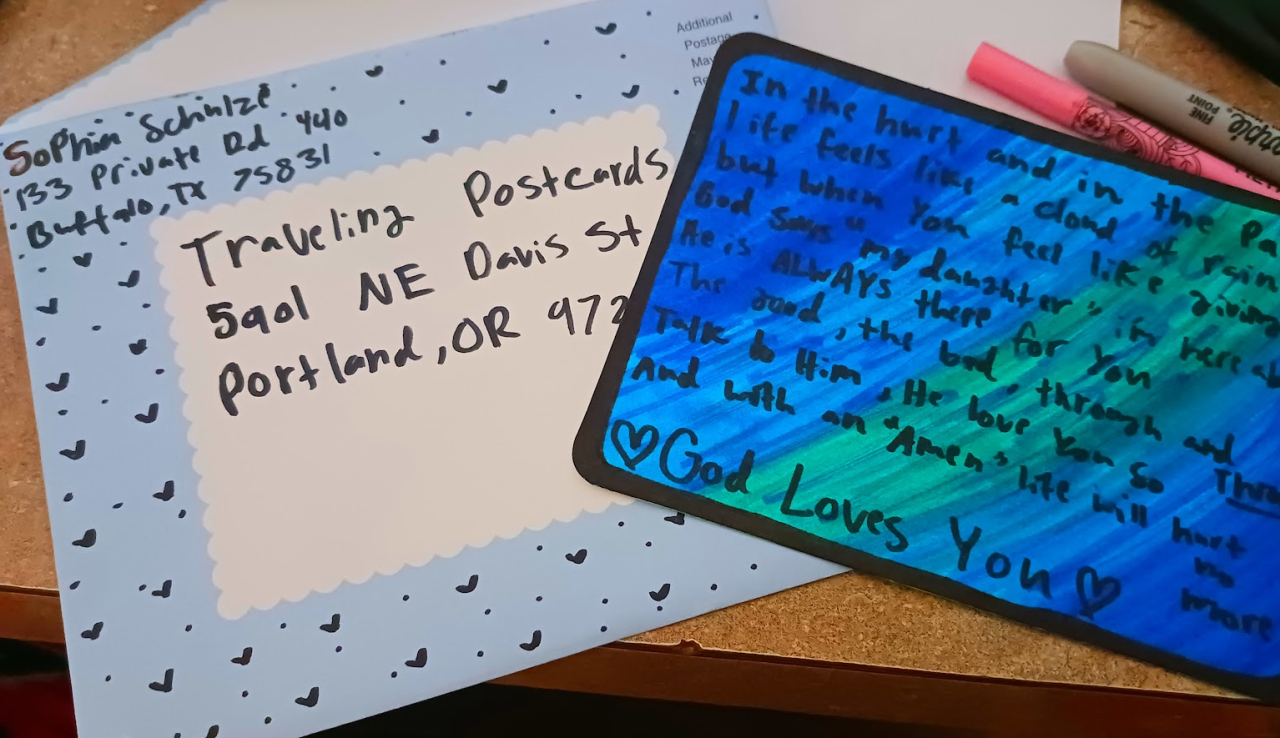 Sophia Schulze
133 Private Rd 440
Buffalo, TX 75831
Additional
Postage
May
Re
Traveling Postcards
5901 NE Davis St
Portland, OR 972
In the hurt and in the pa
life feels like a cloud of rain
but when you feel like giving
God says "my daughter", i'm here
He is ALWAYS there for you
The good, the bad, through and Thro
Talk to Him, He love you so
And with an "Amen" life will hurt no more
God Loves You
FINE
POINT